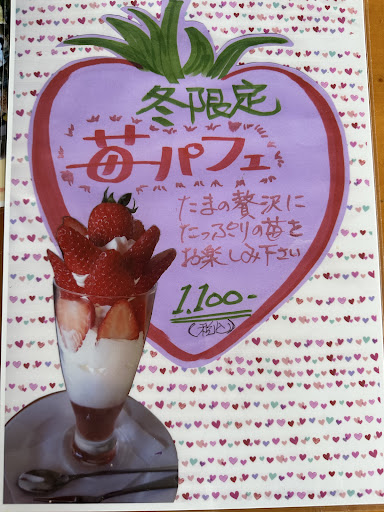 冬限定
苺パフェ
たまの贅沢に
たっぷりの苺を
お楽しみ下さい
1.100-
(税込)